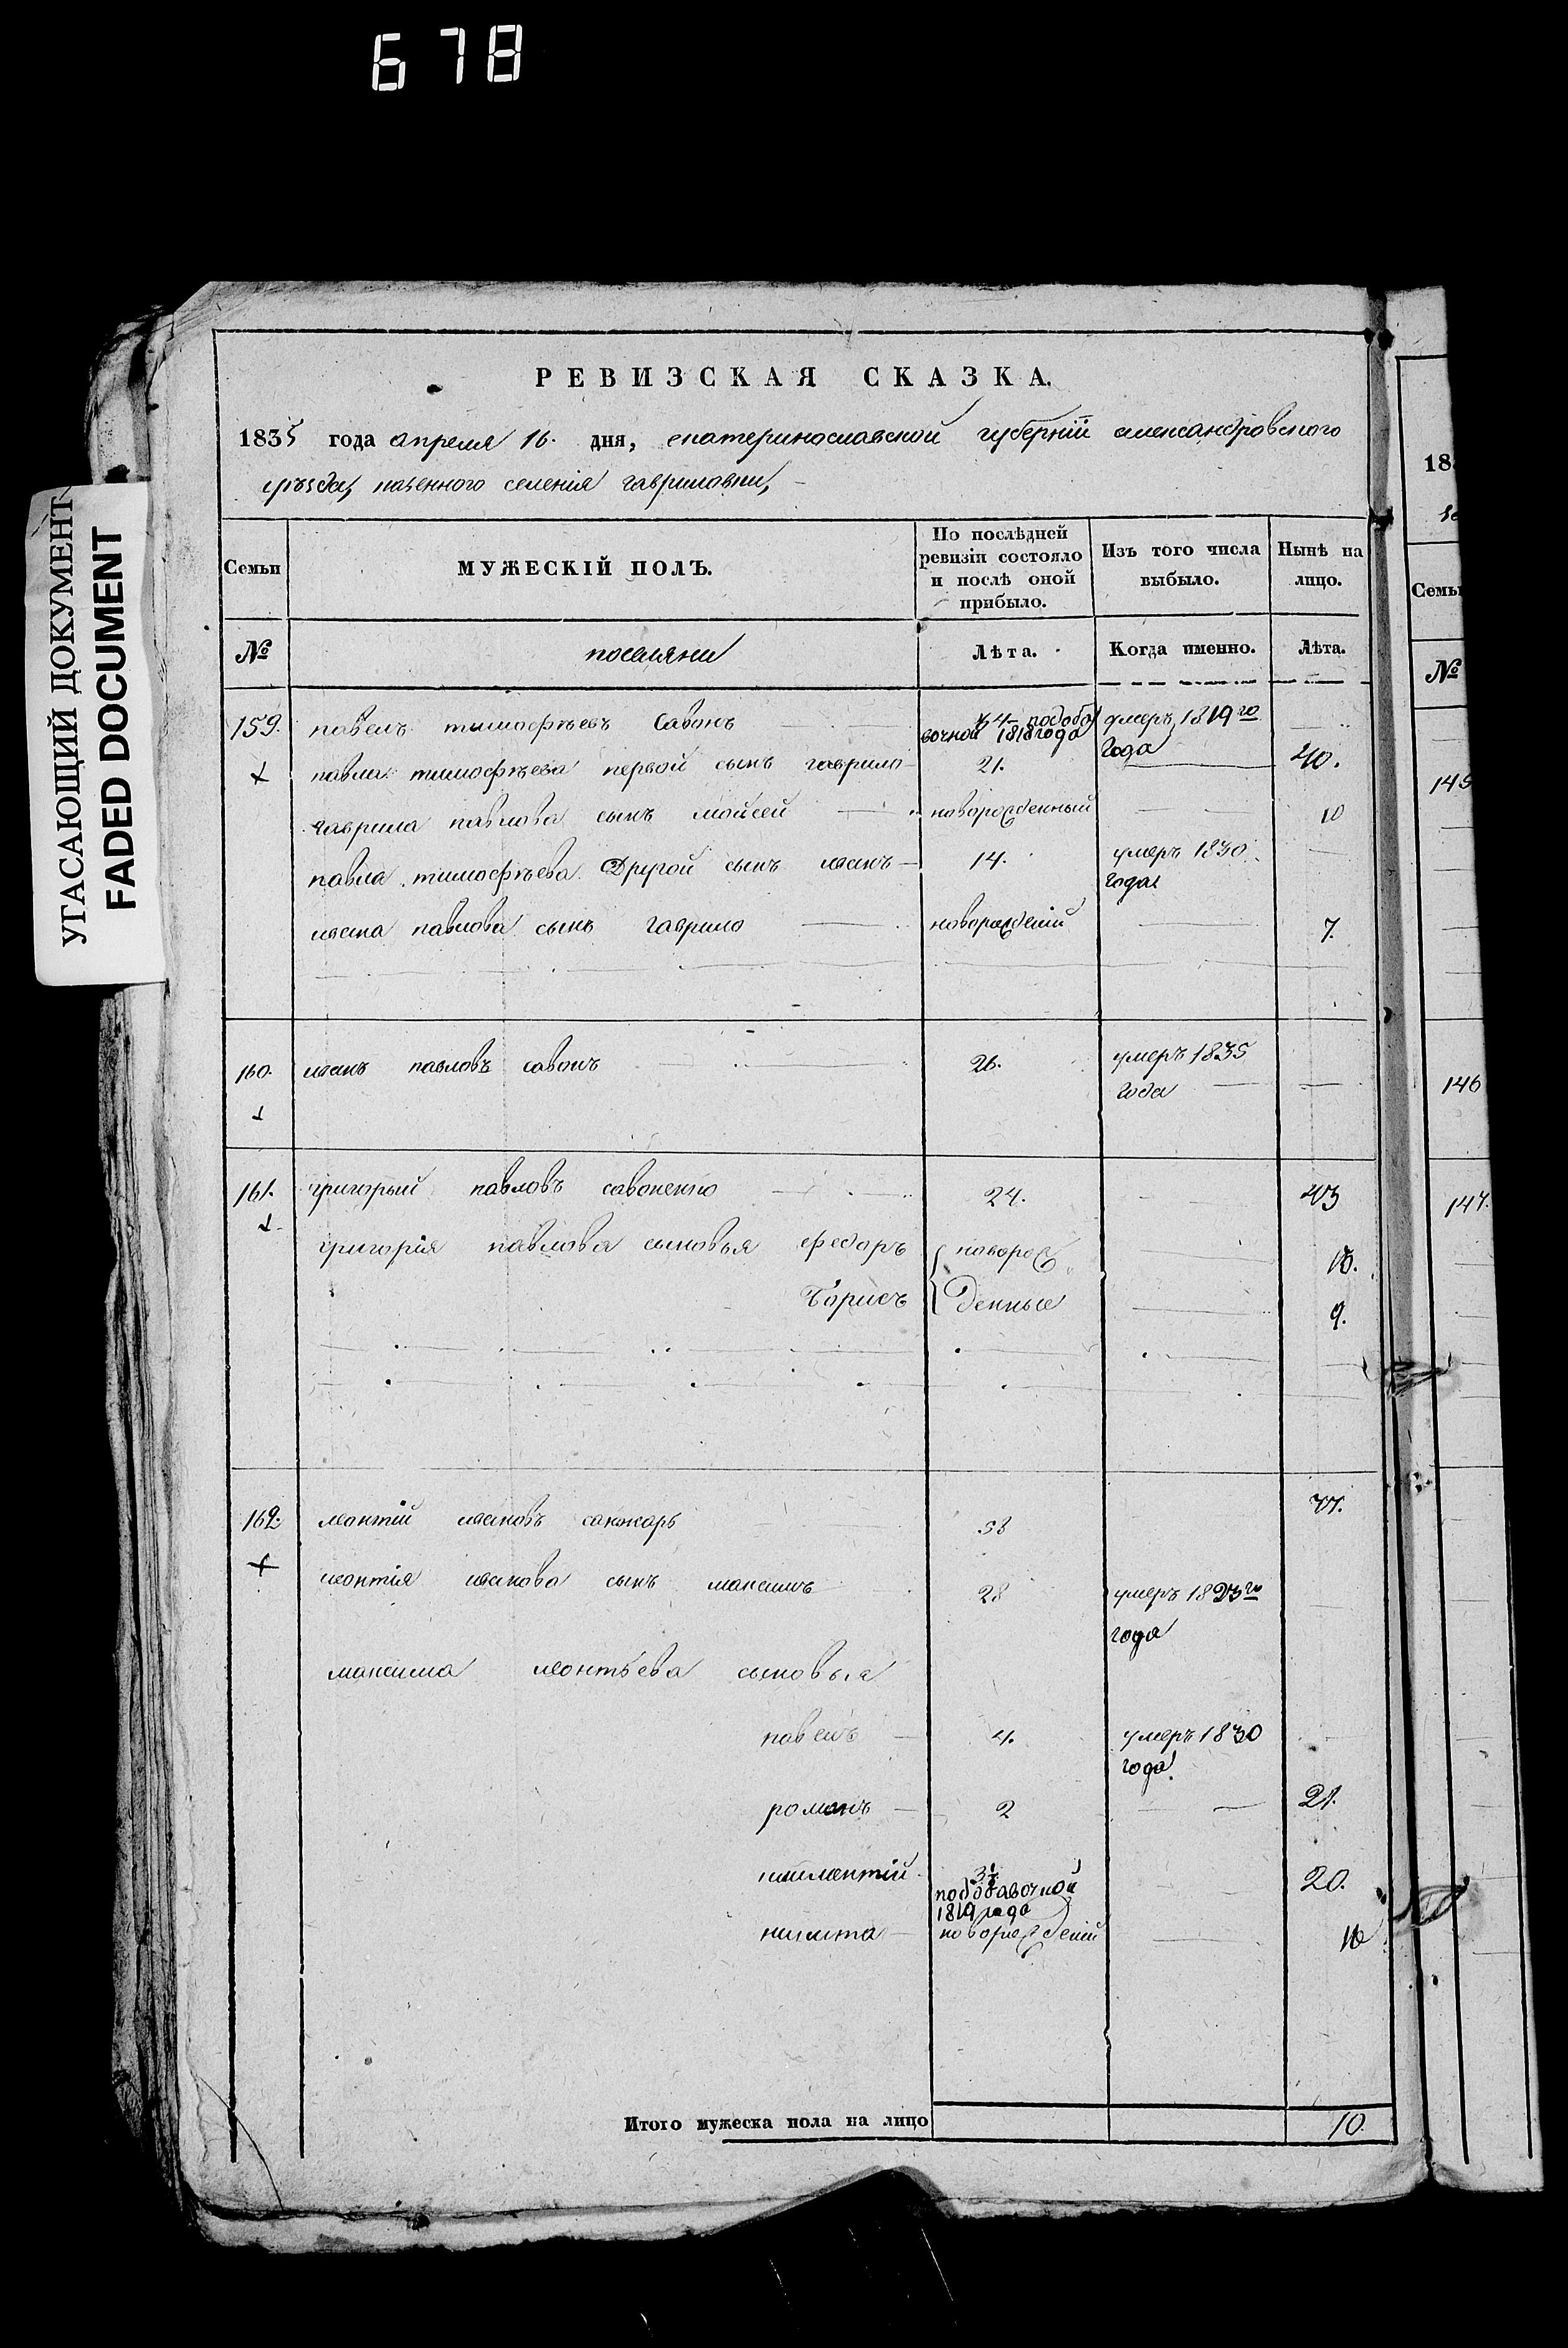 678
УГАСАЮЩИЙ ДОКУМЕНТ
FADED DOCUMENT
РЕВИЗСКАЯ СКАЗКА.
1835 года апреля 16. дня, екатеринославской губерніи александровского
уѣзда, казенного селенія гавриловки,
Семьи МУЖЕСКІЙ ПОЛЪ. По послѣдней ревизіи состояло и послѣ оной прибыло. Изъ того числа выбыло. Нынѣ на лицо.
№ поселяни Лѣта. Когда именно. Лѣта.
159. павелъ тимофѣевъ Савонъ 54 подоба вочной 1818 года умеръ 1819го года
павла тимофѣева первой сынъ гаврило 21. 40.
гаврила павлова сынъ мойсей новорожденный 10
павла тимофѣева Другой сынъ иванъ 14. умеръ 1830 года
ивана павлова сынъ гаврило новорожденій 7.
160. иванъ павловъ савонъ 26. умеръ 1835 года
161. григорый павловъ савоненко 24. 43
григорія павлова сыновья федоръ новорож 10.
борисъ денные 9.
162. леонтій ивановъ санжаръ 58 77.
леонтія иванова сынъ максимъ 28 умеръ 1823го года
максима леонтьева сыновья
павелъ 4. умеръ 1830 года
романъ 2 21.
подобавочной 1819 года 20.
никита новорожденій 10
Итого мужеска пола на лицо 10.
18
Семьи
№
145
146
147.